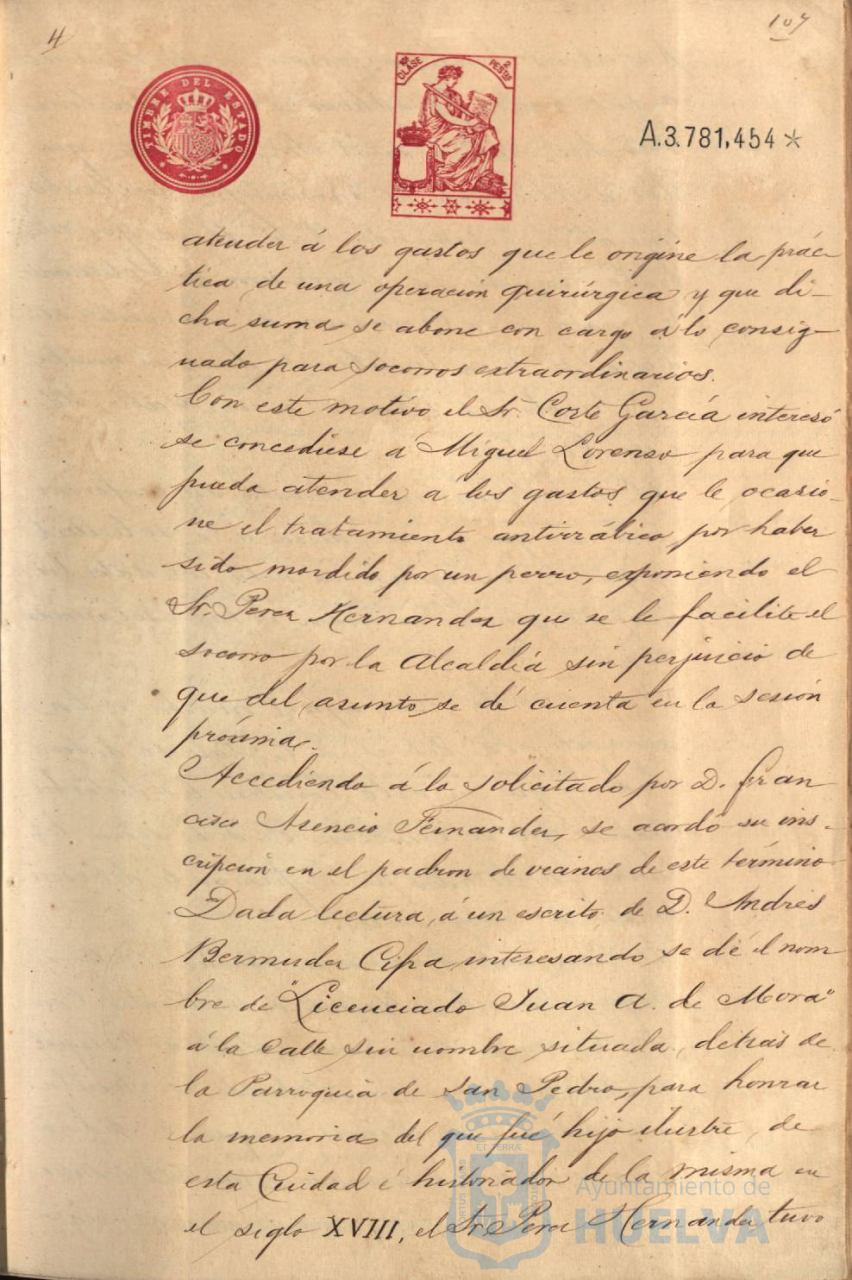 4
107
TIMBRE DEL ESTADO
10ª CLASE
2 PESTAS
A.3.781,454*
atender á los gastos que le origine la prác-
tica de una operación quirúrgica y que di-
cha suma se abone con cargo á lo consig-
nado para socorros extraordinarios.
Con este motivo el Sr. Corte García interesó
se concediese á Miguel Lorenzo para que
pueda atender á los gastos que le ocasio-
ne el tratamiento antirrábico, por haber
sido mordido por un perro, exponiendo el
Sr. Perez Hernandez que se le facilite el
socorro por la Alcaldía sin perjuicio de
que del asunto se dé cuenta en la sesión
próxima.
Accediendo á lo solicitado por D. Fran-
cisco Asencio Fernandez, se acordó su ins-
cripción en el padron de vecinos de este término
Dada lectura á un escrito de D. Andrés
Bermudez Cifra interesando se dé el nom-
bre de "Licenciado Juan A. de Mora"
á la Calle sin nombre situada, detrás de
la Parroquia de San Pedro, para honrar
la memoria del que fué hijo ilustre, de
esta Ciudad é historiador de la misma en
el siglo XVIII, el Sr. Perez Hernandez tuvo
Ayuntamiento de
HUELVA